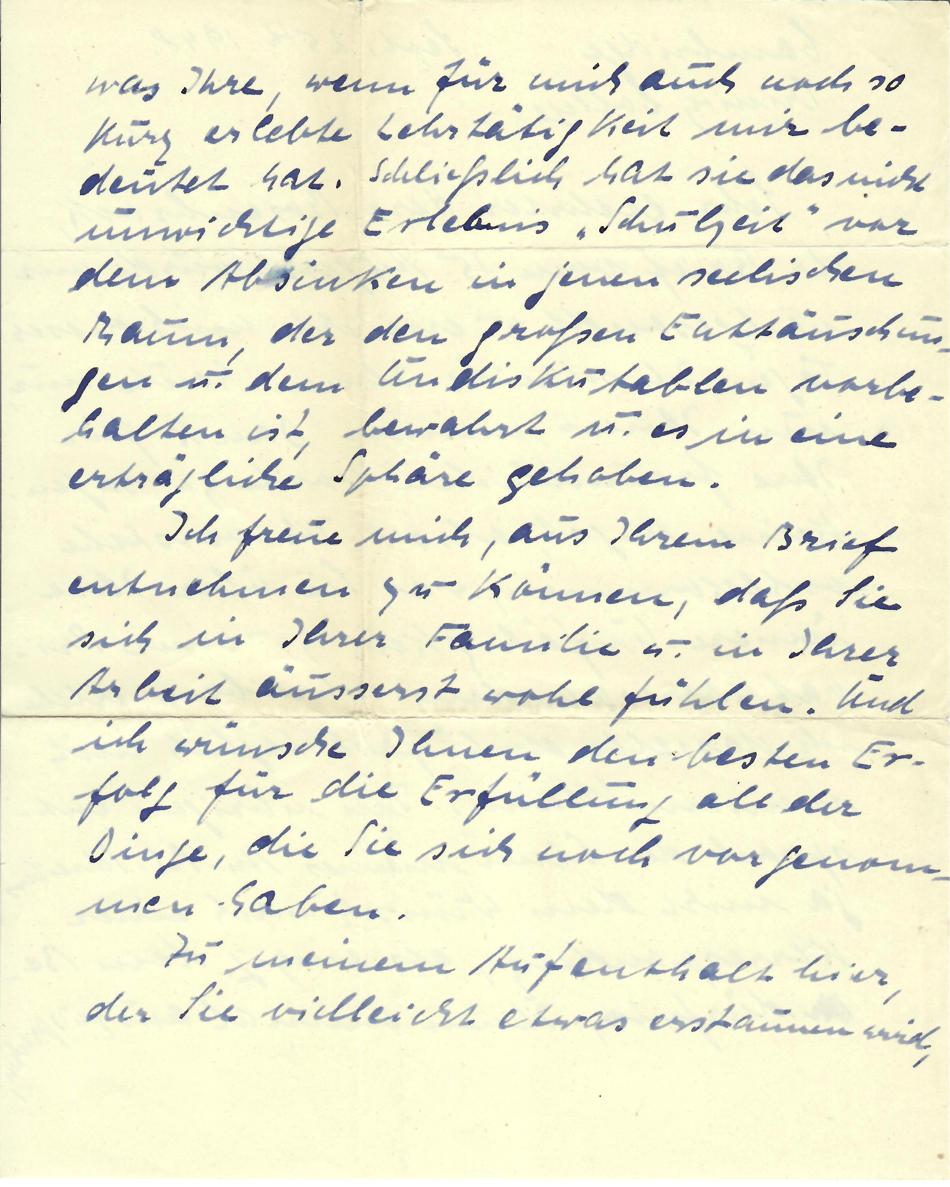 was Ihre, wenn für mich auch noch so
kurz erlebte Lehrtätigkeit mir be-
deutet hat. Schließlich hat sie das nicht
unwichtige Erlebnis „Schulzeit" vor
dem Absinken in jenen seelischen
Raum, der den großen Enttäuschun-
gen u. dem Undiskutablen vorbe-
halten ist, bewahrt u. es in eine
erträgliche Sphäre gehoben.
Ich freue mich, aus Ihrem Brief
entnehmen zu können, daß Sie
sich in Ihrer Familie u. in Ihrer
Arbeit äusserst wohl fühlen. Und
ich wünsche Ihnen den besten Er-
folg für die Erfüllung all der
Dinge, die Sie sich noch vorgenom-
men haben.
Zu meinem Aufenthalt hier,
der Sie vielleicht etwas erstaunen wird,